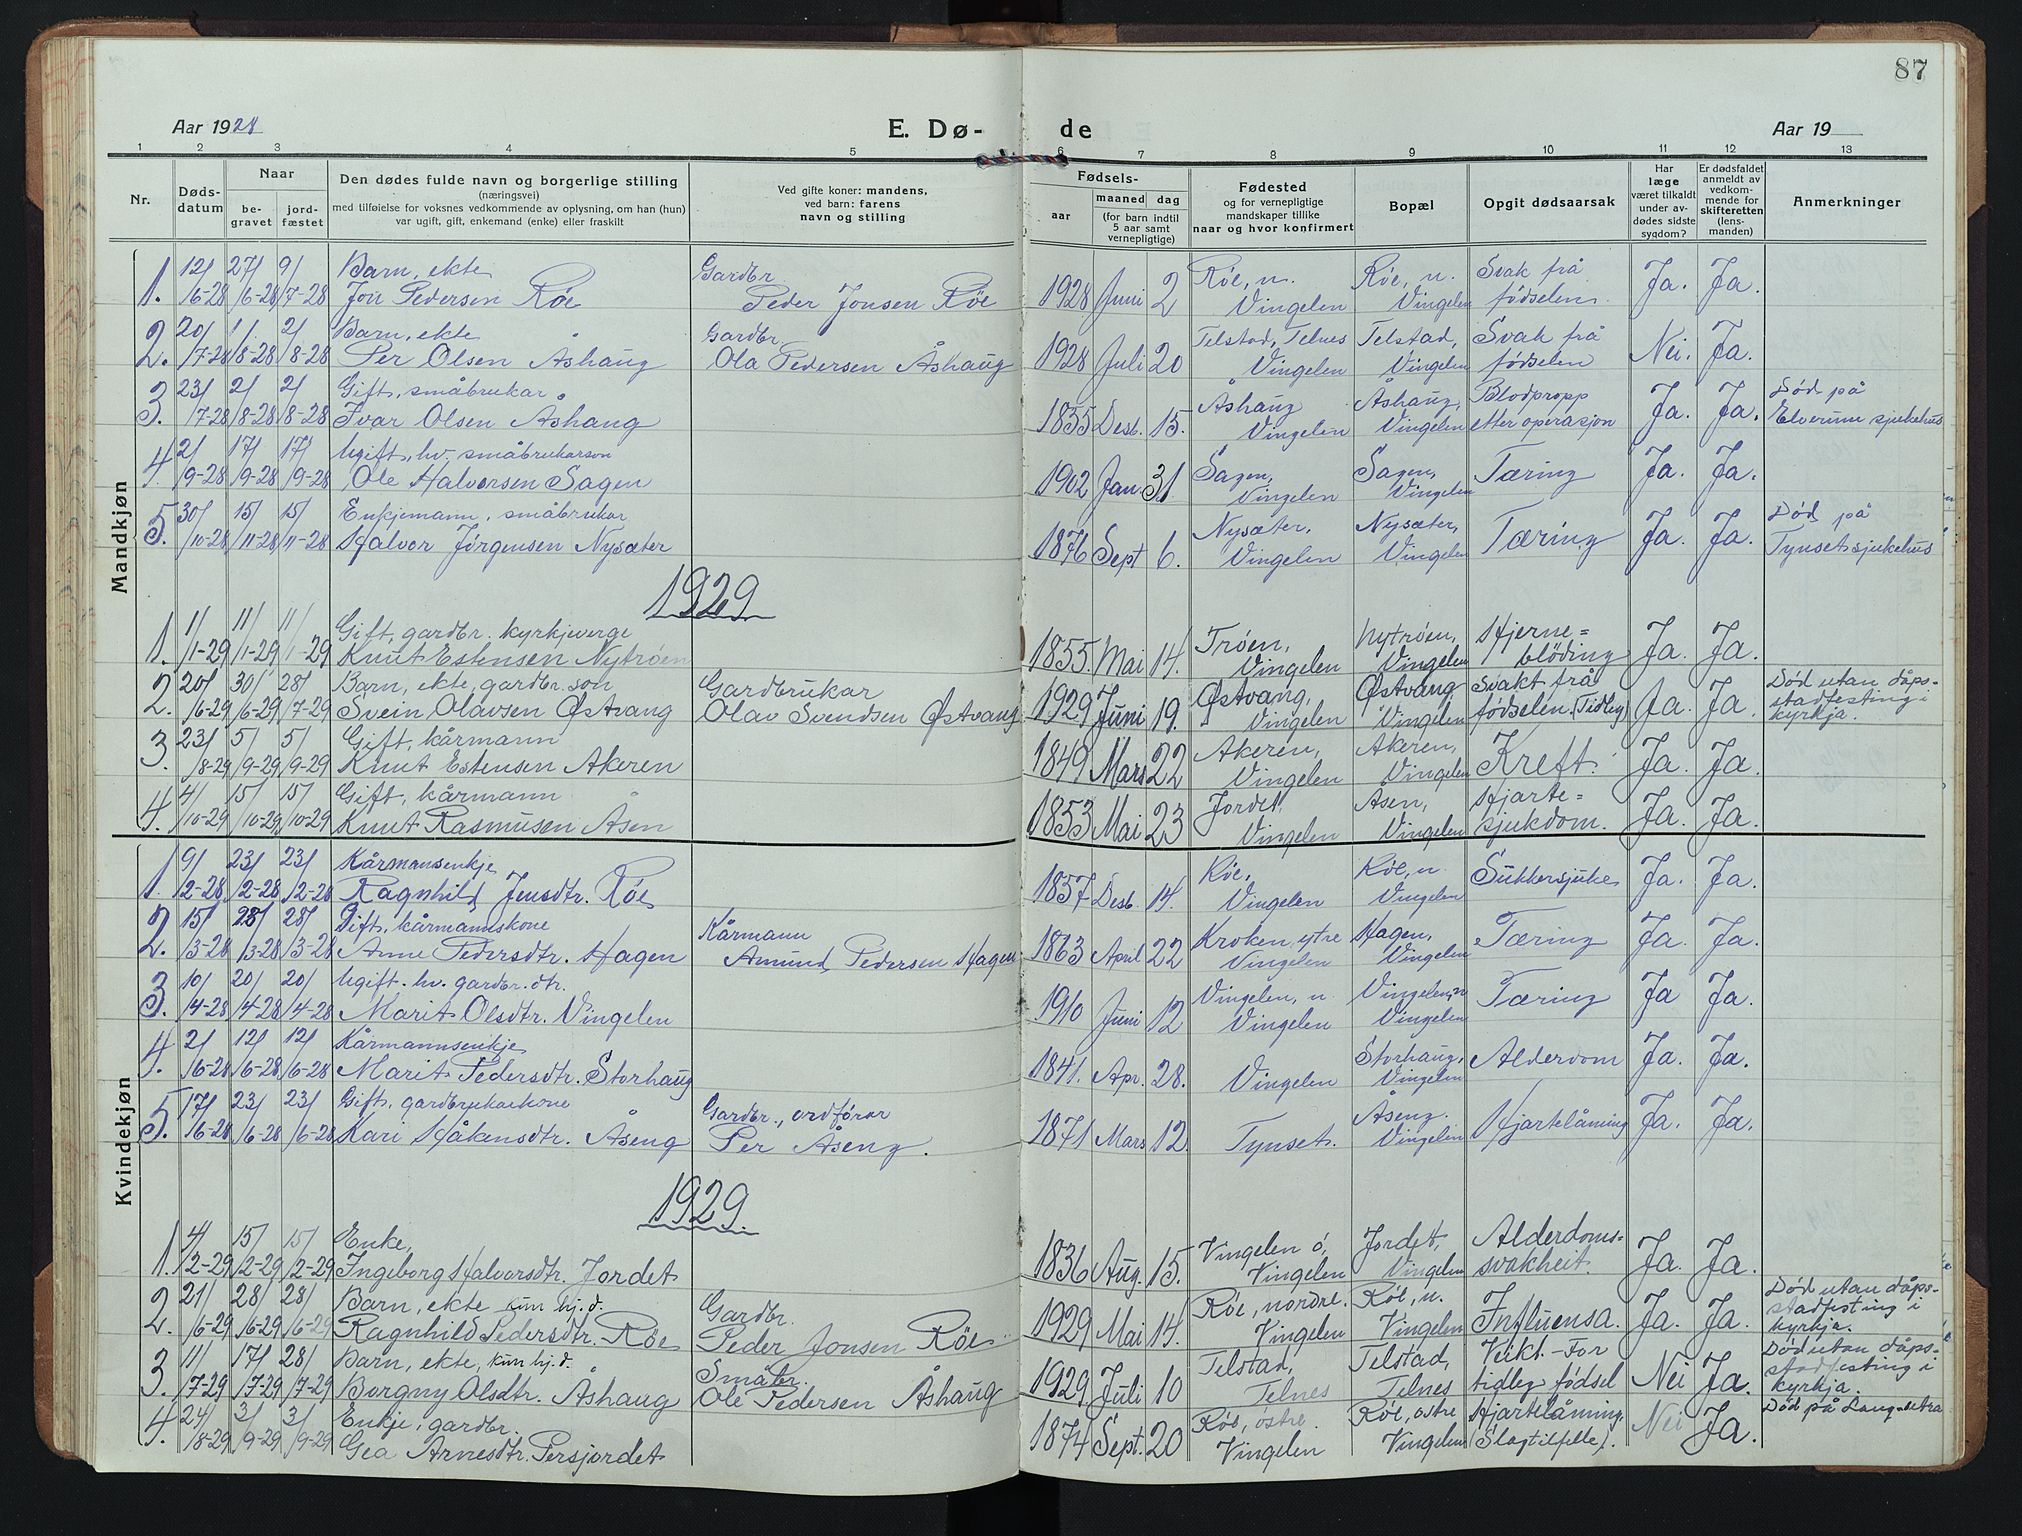 87
Aar 1928
E. Dø-
de
Aar 19
1 2 3 4 5 6 7 8 9 10 11 12 13
Nr.
Døds-
datum
Naar
be-
gravet
jord-
fæstet
Den dødes fulde navn og borgerlige stilling
(næringsvei)
med tilføielse for voksnes vedkommende av oplysning, om han (hun)
var ugift, gift, enkemand (enke) eller fraskilt
Ved gifte koner: mandens,
ved barn: farens
navn og stilling
Fødsels-
aar
maaned
dag
(for barn indtil
5 aar samt
vernepligtige)
Fødested
og for vernepligtige
mandskaper tillike
naar og hvor konfirmert
Bopæl
Opgit dødsaarsak
Har
læge
været tilkaldt
under av-
dødes sidste
sygdom?
Er dødsfaldet
anmeldt av
vedkom-
mende for
skifteretten
(lens-
manden)
Anmerkninger
Mandkjøn
12/ 27/ 9/ Barn, ekte Gardbr Røe, n. Røe, n. Svak frå
1. 6-28 6-28 7-28 Jon Pedersen Røe Peder Jonsen Røe 1928 Juni 2 Vingelen Vingelen fødselen. Ja. Ja.
20/ 1/ 2/ Barn, ekte Gardbr. Telstad, Telnes Telstad, Svak frå
2. 7-28 8-28 8-28 Per Olsen Åshaug Ola Pedersen Åshaug 1928 Juli 20 Vingelen Vingelen fødselen Nei. Ja.
23/ 2/ 2/ Gift, småbrukar Åshaug Åshaug, Blodpropp Død på
3. 7-28 8-28 8-28 Ivar Olsen Åshaug 1855 Desb. 15. Vingelen Vingelen etter operasjon Ja. Ja. Elverum sjukehus
2/ 17/ 17/ Ugift, hv. småbrukarson Sagen, Sagen,
4. 9-28 9-28 9-28 Ole Halvorsen Sagen 1902 Jan 31 Vingelen Vingelen Tæring Ja. Ja.
30/ 15/ 15/ Enkjemann, småbrukar Nysæter, Nysæter, Død på
5. 10-28 11-28 11-28 Halvor Jørgensen Nysæter 1876 Sept 6. Vingelen Vingelen Tæring Ja. Ja. Tynset sjukehus
1929
1/ 11/ 11/ Gift, gardbr. kyrkjeverge Trøen, Nytrøen, Hjerne=
1. 1-29 1-29 1-29 Knut Estensen Nytrøen 1855. Mai 14. Vingelen Vingelen blöding Ja. Ja.
20/ 30/ 28/ Barn, ekte, gardbr. son Gardbrukar Østvang, Østvang Svakt frå Død utan dåps-
2. 6-29 6-29 7-29 Svein Olavsen Østvang Olav Svendsen Østvang 1929 Juni 19. Vingelen Vingelen fødselen. (Tidleg) Ja. Ja. stadfesting i
kyrkja.
23/ 5/ 5/ Gift, kårmann Akeren, Akeren,
3. 8-29 9-29 9-29 Knut Estensen Akeren 1849 Mars 22 Vingelen Vingelen Kreft. Ja. Ja.
4/ 15/ 15/ Gift, kårmann Jordet, Åsen, Hjarte=
4. 10-29 10-29 10-29 Knut Rasmusen Åsen 1853 Mai 23 Vingelen Vingelen sjukdom. Ja. Ja.
Kvindekjøn
9/ 23/ 23/ Kårmansenkje Røe, Røe, n.
1. 2-28 2-28 2-28 Ragnhild Jensdtr. Røe 1857 Desb. 14. Vingelen Vingelen Sukkersjuke Ja. Ja.
15/ 28/ 28/ Gift, kårmannskone Kårmann Kroken, ytre Hagen,
2. 3-28 3-28 3-28 Anne Pedersdtr. Hagen Amund Pedersen Hagen 1863 April 22 Vingelen Vingelen Tæring Ja. Ja.
10/ 20/ 20/ Ugift. hv. gardbr. dtr. Vingelen, n. Vingelen, n
3. 4-28 4-28 4-28 Marit Olsdtr. Vingelen 1910 Juni 12 Vingelen Vingelen Tæring Ja Ja.
2/ 12/ 12/ Kårmannsenkje Storhaug,
4. 6-28 6-28 6-28 Marit Pedersdtr. Storhaug 1841. Apr. 28. Vingelen Vingelen Alderdom Ja. Ja.
17/ 23/ 23/ Gift, gardbrukarkone Gardbr., ordførar Åseng.
5. 6-28 6-28 6-28 Kari Håkensdtr. Åseng Per Åseng. 1871 Mars 12. Tynset. Vingelen Hjartelåming Ja. Ja.
1929.
4/ 15/ 15/ Enke, Vingelen ö, Jordet, Alderdoms-
1. 2-29 2-29 2-29 Ingeborg Halvorsdtr. Jordet 1836 Aug. 15. Vingelen Vingelen svakheit. Ja. Ja.
21/ 28/ 28/ Barn, ekte kun hj.d. Gardbr. Røe, nordre. Røe, n. Død utan dåps-
2. 6-29 6-29 6-29 Ragnhild Pedersdtr. Røe Peder Jonsen Røe 1929 Mai 14. Vingelen Vingelen Influensa. Ja. Ja. stadfesting i
kyrkja.
11/ 17/ 28/ Barn, ekte, kun hj.d. Småbr. Telstad, Telstad, Veikt.- For Død utan dåps-
3. 7-29 7-29 7-29 Borgny Olsdtr. Åshaug Ole Pedersen Åshaug 1929. Juli 10 Telnes Telnes tidleg fødsel Nei Ja. stadfesting i
kyrkja.
24/ 3/ 3/ Enkje, gardbr. Røe, østre. Røe, østre Hjartelåming Død på
4. 8-29 9-29 9-29 Gea Arnesdtr. Persjordet 1874 Sept. 20 Vingelen Vingelen (Slagtilfelle). Nei Ja.